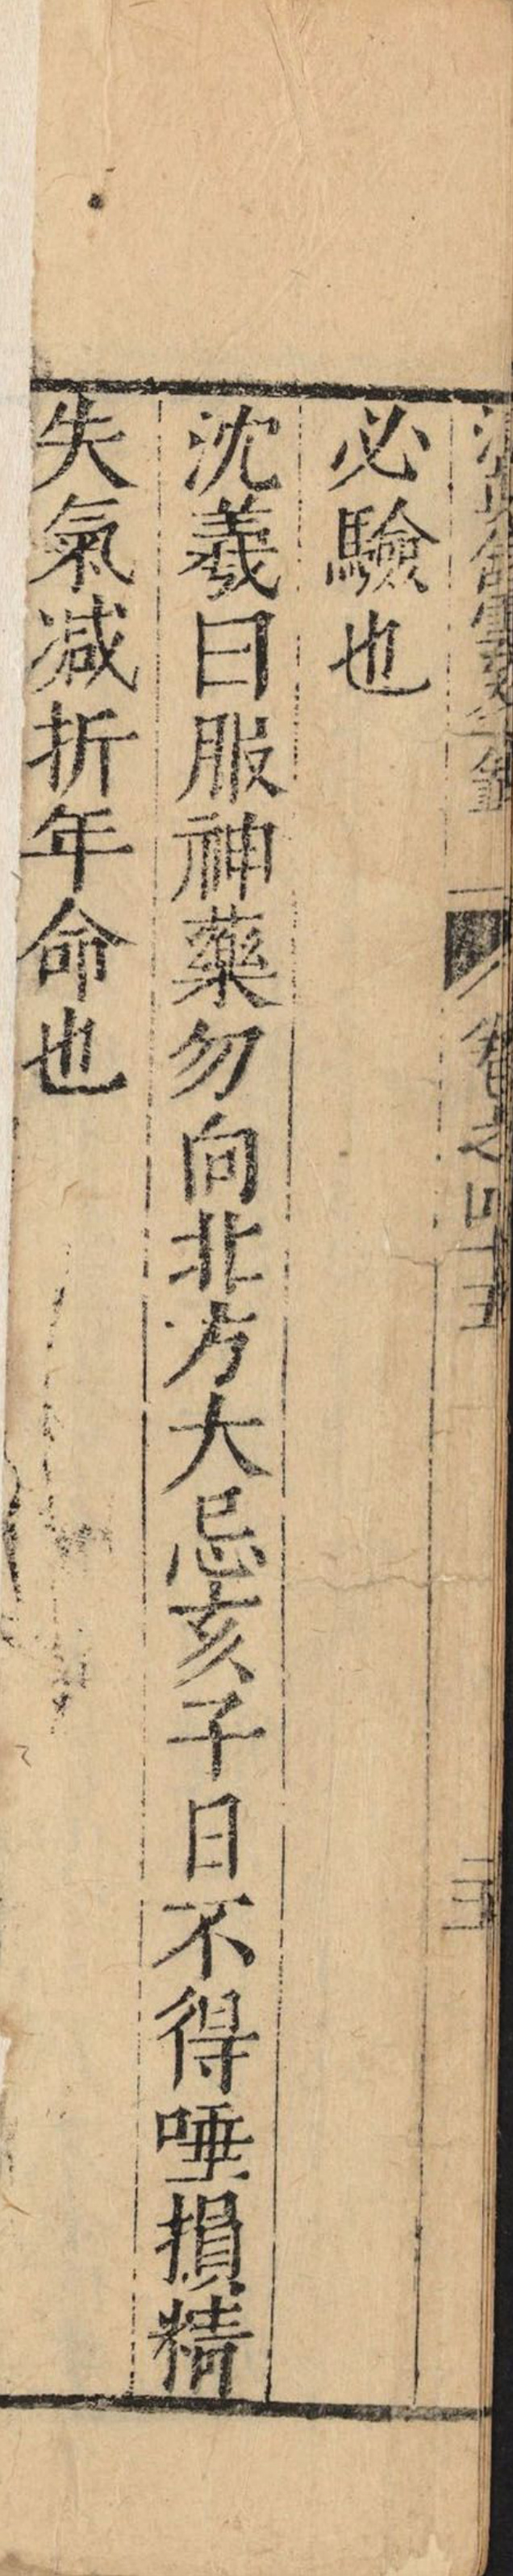 卷之四十五
必驗也
沈羲曰服神藥勿向北方大忌亥子日不得唾損精
失氣减折年命也